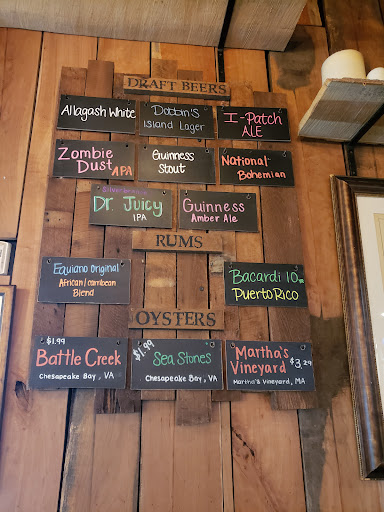 DRAFT BEERS
Allagash White
Dobbin's
Island Lager
I-Patch
ALE
Zombie
Dust APA
Guinness
Stout
National
Bohemian
Silverbranch
Dr. Juicy
IPA
Guinness
Amber Ale
RUMS
Equiano Original
African/Carribean
Blend
Bacardi 10
Puerto Rico
OYSTERS
$1.99
Battle Creek
Chesapeake Bay, VA
$1.99
Sea Stones
Chesapeake Bay, VA
Martha's
Vineyard $3.29
Martha's Vineyard, MA